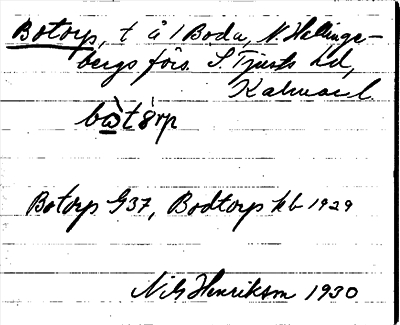 Botorp, t å 1 Boda, N. Hallinge-
bergs förs. S. Tjusts hd,
Kalmar l.
Botorp G37, Bodtorp kb 1929
Nils Henrikson 1930